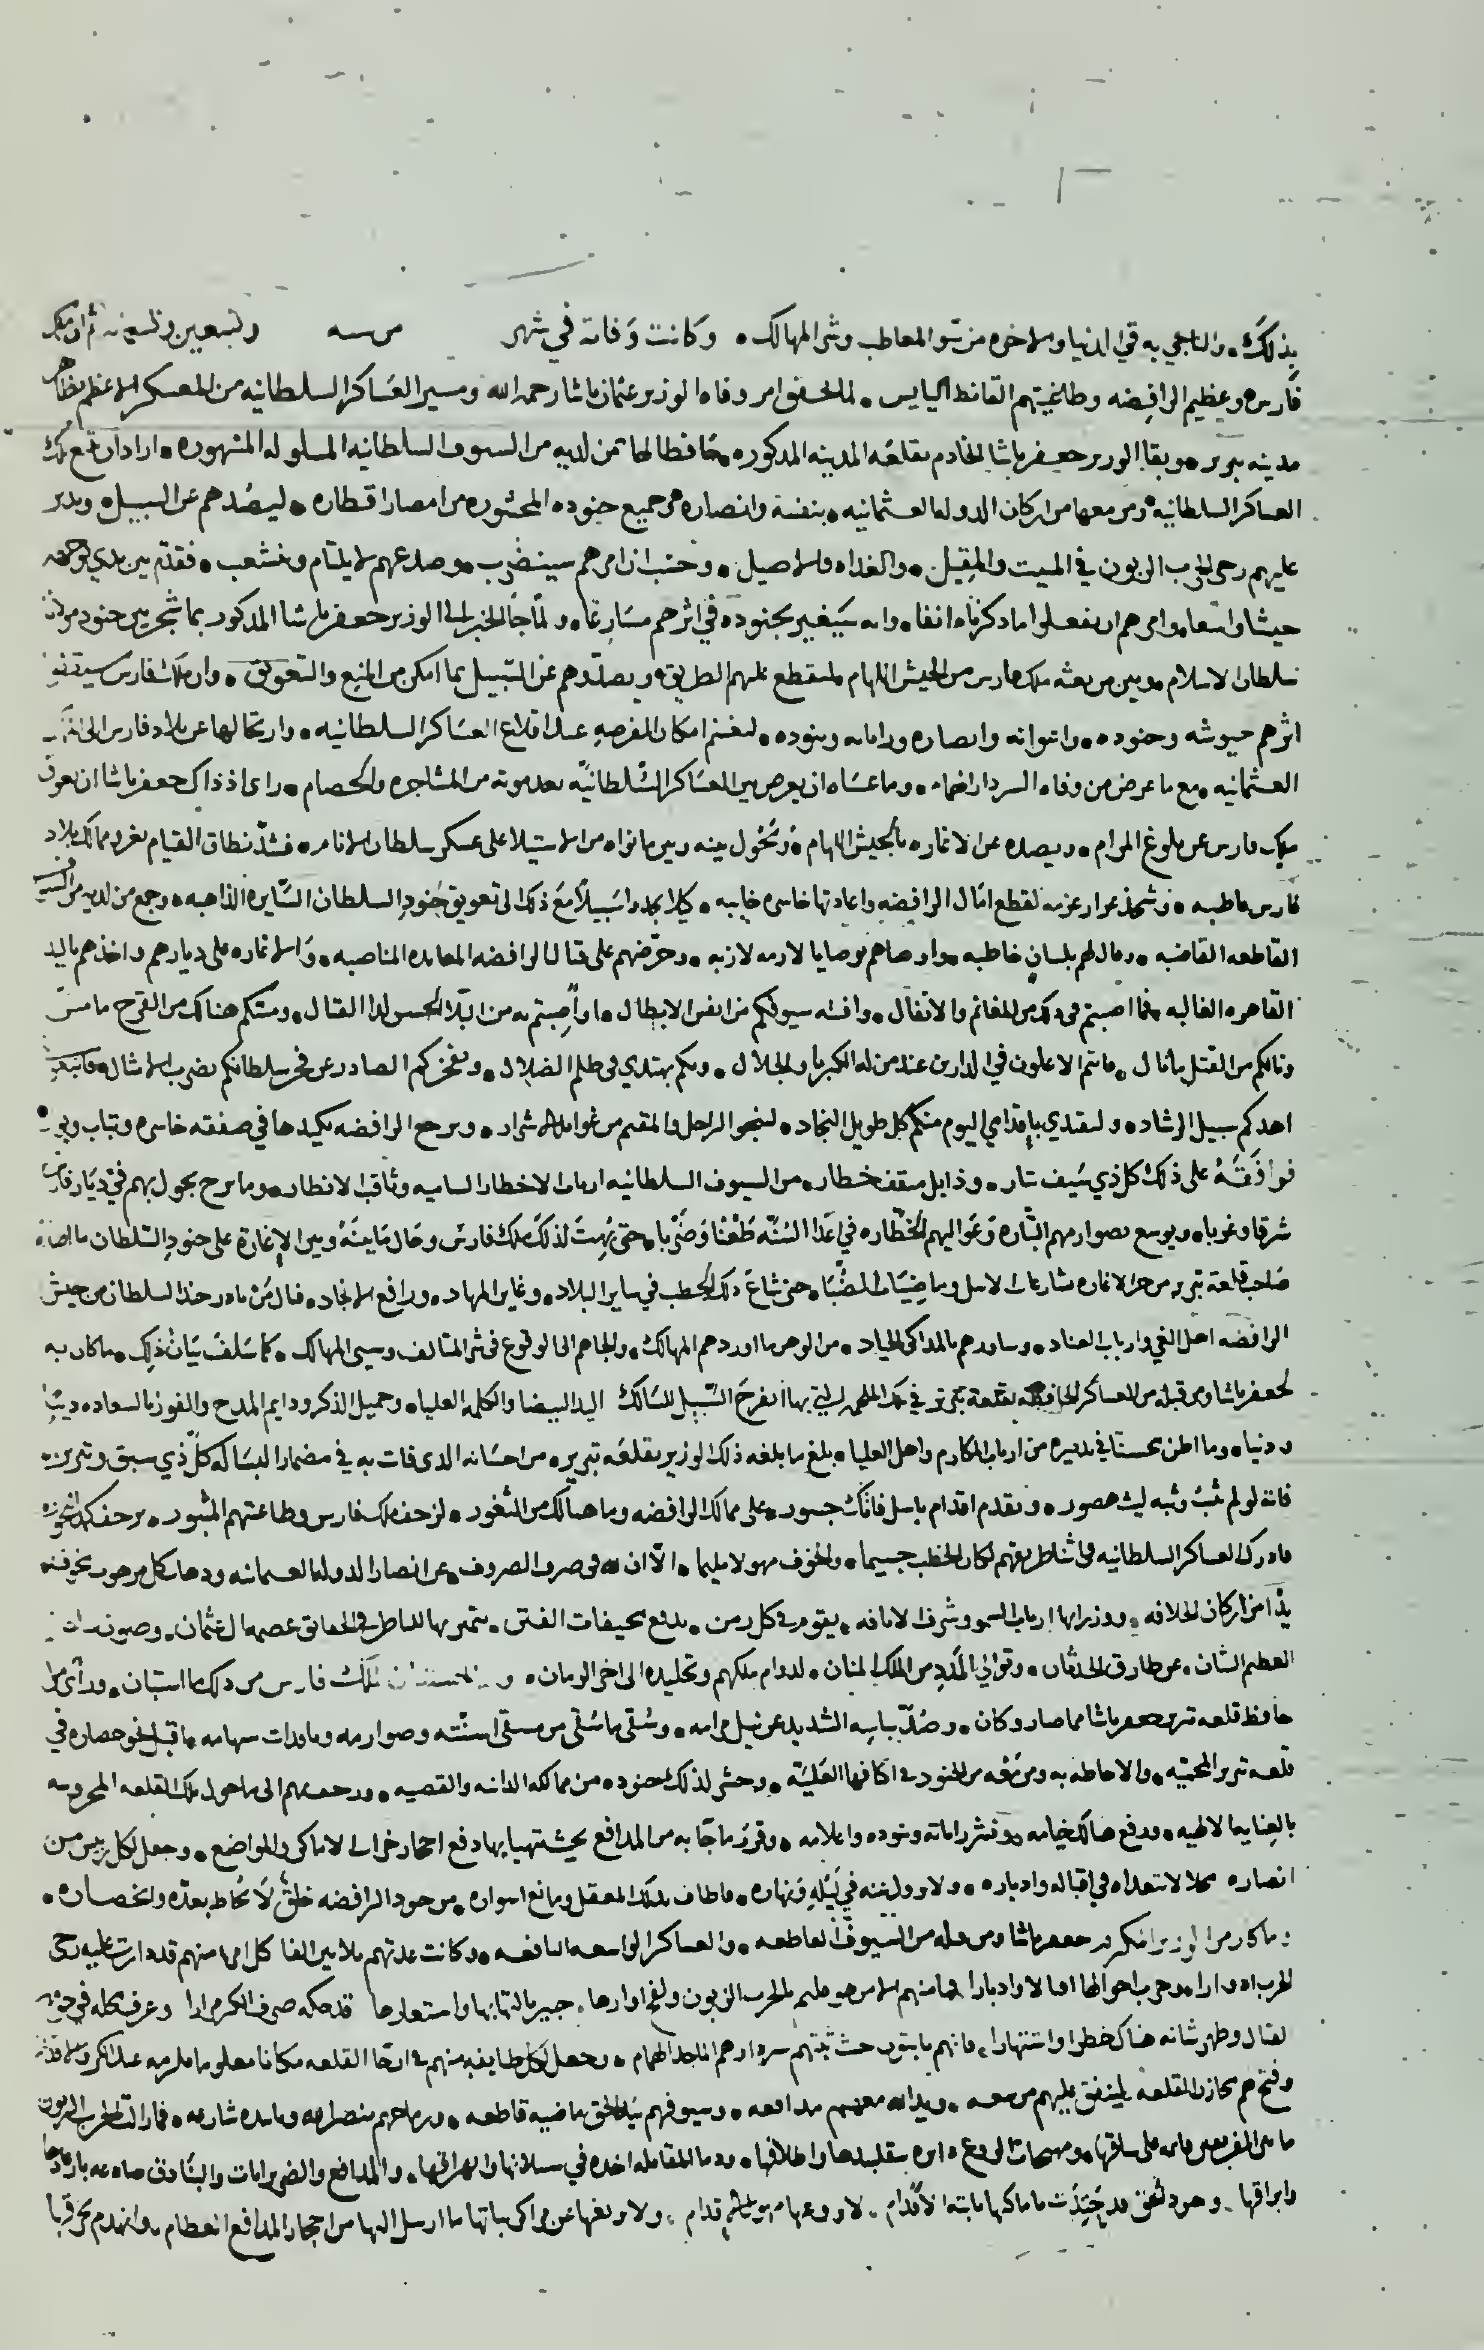 بذلك، والناجي به في الدنيا والاخره من سو المعاطب وشر المهالك، وكانت وفاته في شهر من سنه وتسعين وتسعمايه ثم ان ملك
فارس وعظيم الرافضه وطاغيتهم القانط اليايس، لما تحقق امر وفاه الوزير عثمان باشا رحمه الله ومسير العساكر السلطانيه من المعسكر الاعظم بظاهر
مدينه تبريز، وبقا الوزير جعفر باشا الخادم بقلعه المدينه المذكوره، محافظا لها بمن لديه من السيوف السلطانيه المسلوله المشهوره، اراد ان يتبع تلك
العساكر السلطانيه ومن معها من اركان الدوله العثمانيه، بنفسه وانصاره من جميع جنوده المحشوره من امصار اقطاره، ليصدهم عن السبيل، ويدير
عليهم رحى الحرب الزبون في المبيت والمقيل، والغداه والاصيل، وحسب ان امرهم سينضرب، وصدعهم لا يلتام وينشعب، فقدم بين يدي
جيشا واسعا، وامرهم ان يفعلوا ما ذكرناه انفا، وانه سيغير بجنوده في اثرهم مسارعا، ولما جا الخبر الى الوزير جعفر باشا المذكور بما شجر بين جنود مولانا
سلطان الاسلام، وبين من بعثه ملك فارس من الجيش اللهام، لينقطع عليهم الطريق، ويصدوهم عن السبيل بما امكن من المنع والتعويق، وان ملك فارس سيقفو
اثرهم بجيوشه وجنوده، واعوانه وانصاره وراياته وبنوده، ليغنم امكان الفرصه عند اقلاع العساكر السلطانيه، وارتحالها عن بلاد فارس الى
العثمانيه، مع ما عرض من وفاه السردار، وما عساه ان يعرض بين العساكر السلطانيه بعد موته من المشاجره والخصام، راى اذ ذاك جعفر باشا ان يعوق
ملك فارس عن بلوغ المرام، ويصده عن الاغاره بالجيش اللهام، ويحول بينه وبين ما نواه من الاستيلا على عسكر سلطان الانام، فشد نطاق القيام بغزو ممالك بلاد
فارس قاطبه، وشحذ غرار عزمه لقطع امال الرافضه واعادتها خاسره خايبه، كيلا يجدوا سبيلا مع ذلك الى تعويق جنود السلطان السايره الذاهبه، وجمع من لديه من
القاطعه القاضبه، وقال لهم بلسان خاطبه، واوصاهم بوصايا لازمه لازبه، وحرضهم على قتال الرافضه المعانده المناصبه، والاغاره على ديارهم واخذهم باليد
القاهره الغالبه، فما اصبتم في ذلك من المغانم والانفال، وافنته سيوفكم من انفس الابطال، او اصبتم به من البلا الحسن لدا القتال، ومسكم هناك من القرح ما مس
ونالكم من القتل ما نال، فانتم الاعلون في الدارين عند من له الكبريا والجلال، وبكم يهتدي في ظلم الضلال، وبفخركم الصادر عن فخر سلطانكم تضرب الامثال،
اهدكم سبيل الرشاد، وليقتدي باقدامي اليوم منكم كل طويل النجاد، لينجو الراحل والمقيم من غوايل الاشرار، ويرجع الرافضه بكيدها في صفقه خاسره وتباب
فوافقه على ذلك كل ذي سيف بتار، وذابل مثقف خطار، من السيوف السلطانيه ارباب الاخطار الساميه وثاقب الانظار، وما برح يجول بهم في ديار فارس
شرقا وغربا، ويوسع بصوارمهم البتاره وعواليهم الخطاره في اعدا السنه طعنا وضربا، حتى بهت لذلك ملك فارس وحال ما بينه وبين الاغارة على جنود السلطان ما
صاحب قلعة تبريز من حر الاغاره بشارعات الاسل وماضيات الظبا، حتى شاع ذلك الخطب في ساير البلاد، وغاير المهاد، ورافع الانجاد، فنال من بادر جند السلطان من جيش
الرافضه اهل الغي وارباب العناد، وساورهم بالمذاكي الجياد، من الوهن ما اوردهم المهالك، والجاهم الى الوقوع في شر المتالف وسيي المهالك، كما سلف بيان ذلك، ما كان به
لجعفر باشا ومن قبله من العساكر الحافظه بقلعة تبريز في تلك الملحمه التي بها انفرج السبيل للسالك اليد البيضا والكلمه العليا، وجميل الذكر ودايم المدح والفوز بالسعاده دينا
ودنيا، وما اظن محسنا في تدبيره من ارباب المكارم واهل العليا، بلغ ما بلغه ذلك الوزير بقلعه تبريز، من احسانه الذي فات به في مضمار البساله كل ذي سبق وتبريز،
فانه لو لم يثب وثبه ليث هصور، ويقدم اقدام باسل فاتك جسور، على ممالك الرافضه وما هنالك من الثغور، لزحف ملك فارس وطاغيتهم المثبور، بزحف
فادرك العساكر السلطانيه في اثنا طريقهم لكان الخطب جسيما، والخوف مهولا مليما، الا ان لله في صرف الصروف، عن انصار الدوله العثمانيه ودفاع كل مرهوب مخوف،
يدا من اركان الخلافه، ووزرايها ارباب السمو وشرف الانافه، يقوم في كل زمن، بدفع مخيفات الفتن، يتميز بها للناظر في الحقايق عصمه ال عثمان،
العظيم الشان، عن طارق الحدثان، وتوالي المدد من الملك المنان، لدوام ملكهم وتخليده الى اخر الزمان، ملك فارس من ذلك ما استبان، وراى
حافظ قلعه تبريز جعفر باشا مما صار وكان، وصد بباسه الشديد عن نيل مرامه، وسقي ما سقي من مسقى اسنته وصوارمه وباترات سهامه، اقبل نحو حصاره في
قلعه تبريز المحميه، والاحاطه به ومن معه من الجنود في اكنافها العليه، وحشر لذلك جنوده من ممالكه الدانيه والقصيه، وزحف بهم الى ما حول تلك القلعه المحروسه
بالعنايه الالهيه، ورفع هنالك خيامه، ونشر راياته وبنوده واعلامه، وقرر ما جا به من المدافع بحيث يتهيا بها دفع احجارها الى الاماكن والمواضع، وجعل لكل رييس من
انصاره محلا لا يتعداه في اقباله وادباره، ولا يزول عنه في ليله ونهاره، فاطاف بذلك المعقل ومانع اسواره، من جنود الرافضه خلق لا يحاط بعده وانحصاره،
وما كان من الوزير المكرم جعفر باشا ومن قبله من السيوف القاطعه، والعساكر الواسعه النافعه، وكانت عدتهم ثلاثين الفا كل امر منهم قد دارت عليه رحى
الحرب ادوارا، وجرب احوالها اقبالا وادبارا، فما منهم الا من هو عليم بالحرب الزبون ولفح اوارها، خبير بالتهابها واستعارها قد حنكه صرف الكر مرارا وعرف محله في
لقتال وظهر شانه هناك خطرا واشتهارا، فانهم ثابتون حيث ثبتهم سردارهم الماجد الهمام، وجعل لكل طايفه منهم في ارجا القلعه مكانا معلوما
وفتح لهم مخازن القلعه لينفق عليهم من سعه، ويد الله معهم مدافعه، وسيوفهم بيد الحق ماضيه قاطعه، ورماحهم بنصر الله وتاييده شارعه، فما زالت الحرب الزبون
ما بين الفريقين قايمه على ساقها، ومهيجات الروع اخذه بتقليدها واطلاقها، ودما المقاتله اخذه في سيلانها واهراقها، والمدافع والضربزانات والبنادق صادعه بارعادها
وابراقها، وجنود الحق قد جنبذت باماكنها ثابته الاقدام، لا يروعها، ولا يدفعها عن مراكز ثباتها ما ارسل اليها من احجار المدافع العظام، وانهدم من قربا